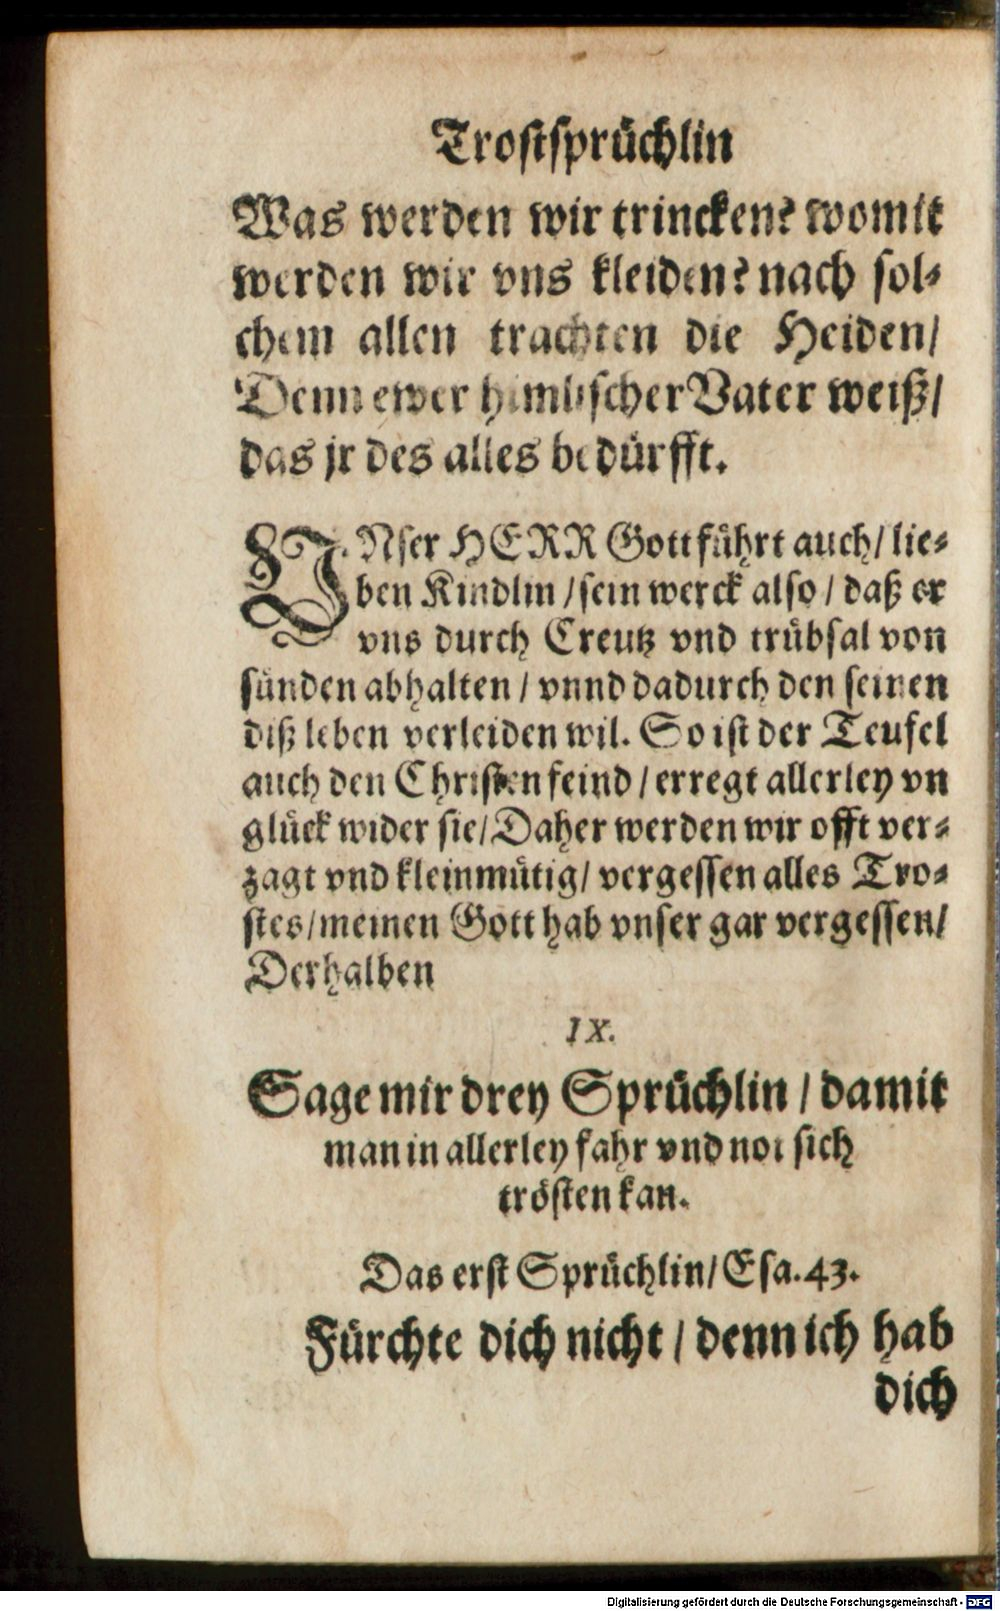 Trostsprüchlin
Was werden wir trincken? womit
werden wir vns kleiden? nach sol-
chem allen trachten die Heiden/
Denn ewer himlischer Vater weiß/
das jr des alles bedürfft.
VNser HERR Gott führt auch/ lie-
ben Kindlin / sein werck also / daß er
vns durch Creutz vnd trübsal von
sünden abhalten / vnnd dadurch den seinen
diß leben verleiden wil. So ist der Teufel
auch den Christen feind / erregt allerley vn
glück wider sie/ Daher werden wir offt ver-
zagt vnd kleinmütig/ vergessen alles Tro-
stes/ meinen Gott hab vnser gar vergessen/
Derhalben
IX.
Sage mir drey Sprüchlin / damit
man in allerley fahr vnd not sich
trösten kan.
Das erst Sprüchlin/ Esa. 43.
Fürchte dich nicht / denn ich hab
dich
Digitalisierung gefördert durch die Deutsche Forschungsgemeinschaft - DFG